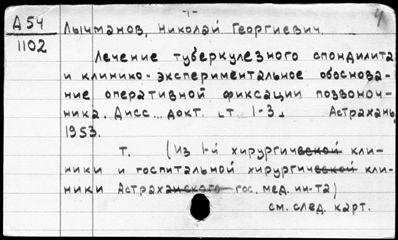 -1-
4
А54
1102
Лычманов, Николай Георгиевич.
Лечение туберкулезного спондилита
и клинико-экспериментальное обоснова-
ние оперативной фиксации позвоноч-
ника. Дисс... докт. [т. 1-3]. Астрахань,
1953.
т. (Из 1-й хирургической кли-
ники и госпитальной хирургической кли-
ники Астраханского гос. мед. ин-та)
см. след. карт.